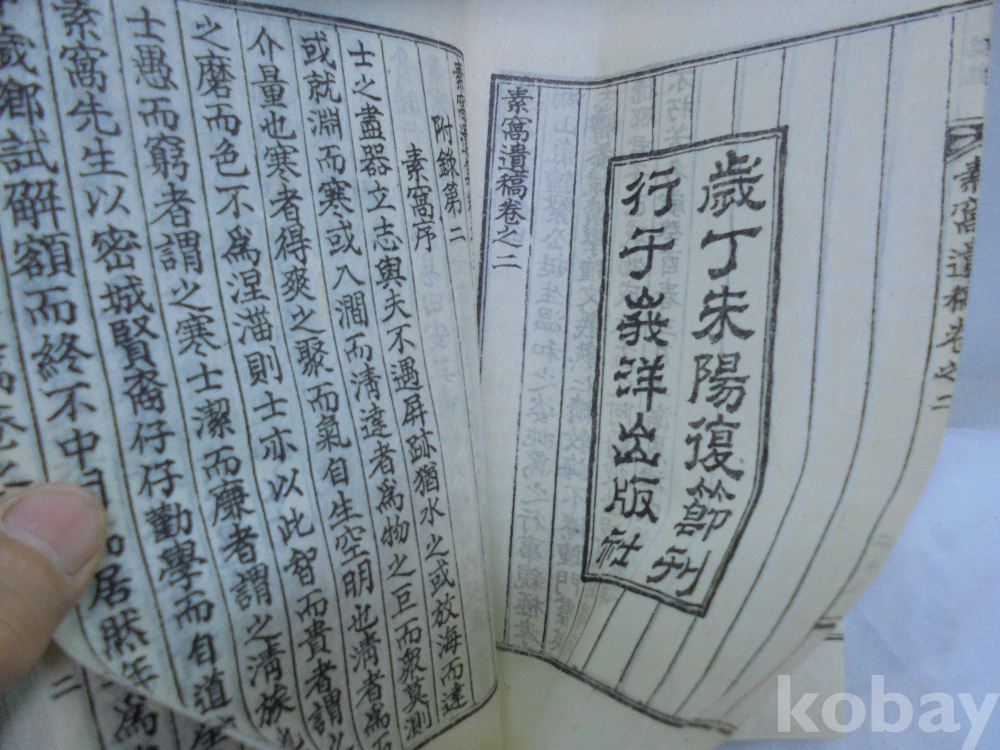 素窩遺稿卷之二
歲丁未陽復節刊
行于峩洋出版社
素窩遺稿卷之二
附錄第二
素窩序
士之盡器立志與夫不遇屛跡猶水之或放海而達
或就淵而寒或入澗而淸達者爲物之巨而衆莫測
介量也寒者得爽之聚而氣自生空明也淸者爲
之磨而色不爲涅淄則士亦以此智而貴者謂
士愚而窮者謂之寒士潔而廉者謂之淸族
素窩先生以密城賢裔仔仔勤學而自道
歲鄕試解額而終不中 居然年爲
二
kobay